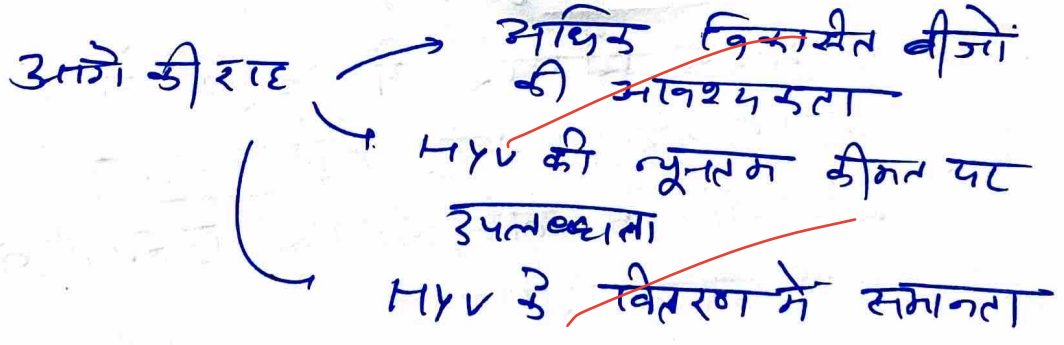 आगे की राह
अधिक विकासीत बीजों
की आवश्यकता
HYV की न्यूनतम कीमत पर
उपलब्धता
HYV के वितरण में समानता